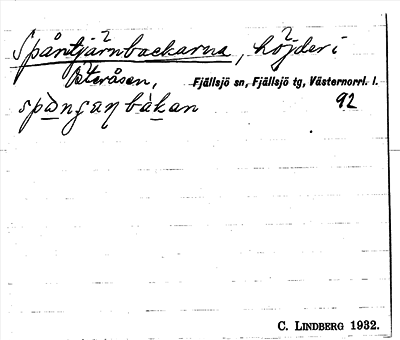 Spåntjärnbackarna, höjder i
Västeråsen, Fjällsjö sn, Fjällsjö tg, Västernorrl. l.
92
C. LINDBERG 1932.